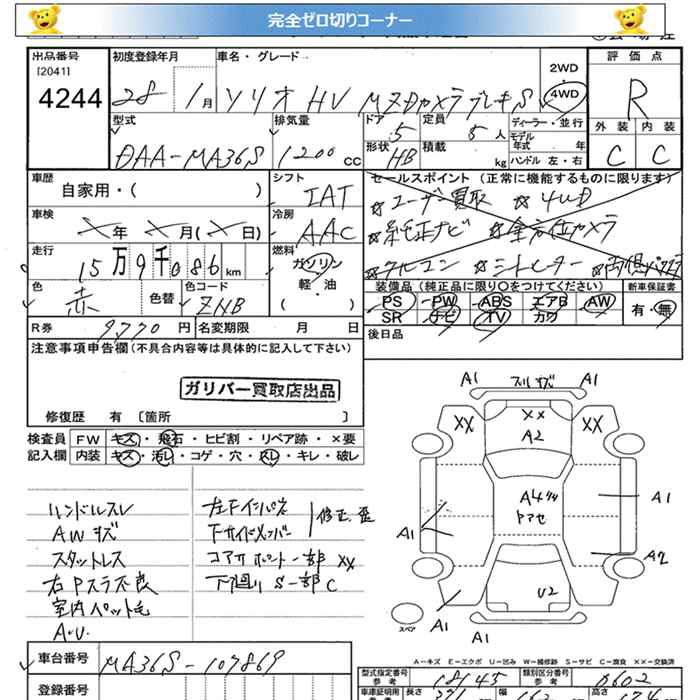 完全ゼロ切りコーナー
出品番号 初度登録年月 車名・グレード 2WD 評価点
[2041] 4WD
4244 28 1月 ソリオ HV MZDカメラブレーキS R
型式 排気量 ドア 定員 ディーラー・並行 外装 内装
DAA-MA36S 1200cc 5 5人 モデル年式 年 C C
形状 HB 積載 kg ハンドル 左・右
車歴 シフト セールスポイント (正常に機能するものに限ります)
自家用・( ) IAT ☆ユーザー買取 ☆4WD
車検 冷房 ☆純正ナビ ☆全方位カメラ
メ年 メ月(メ日) AAC
走行 燃料 ☆シートヒーター
15万9千086km ガソリン 装備品 (純正品に限り○をつけてください) 新車保証書
色 色コード 軽・油 PS PW ABS エアB AW 有・無
赤 色替 ZNB ( ) SR ナビ TV カワ
R券 9770円 名変期限 月 日 後日品
注意事項申告欄 (不具合内容等は具体的に記入して下さい)
ガリバー買取店出品
修復歴 有 [箇所 ]
検査員 FW キズ・飛石・ヒビ割・リペア跡・×要
記入欄 内装 キズ・汚レ・コゲ・穴・スレ・キレ・破レ
ハンドルスレ 左Fインパネ
AWキズ 下サイドメンバー 修正、歪
スタットレス コアサポート一部 XX
右Pスラ不良 下廻り S一部C
室内ペット毛
A.U.
A1 フルキズ A1
XX XX XX
A2
A4
A1 A1
A2
U2
A1 A1
スペア
A-キズ E-エクボ U-凹み W-補修跡 S-サビ C-腐食 ××-交換済
車台番号 MA36S-107869
型式指定番号 参考 18145 類別区分番号 参考 0602
登録番号 車庫証明用 長さ 371 幅 162 高さ 174